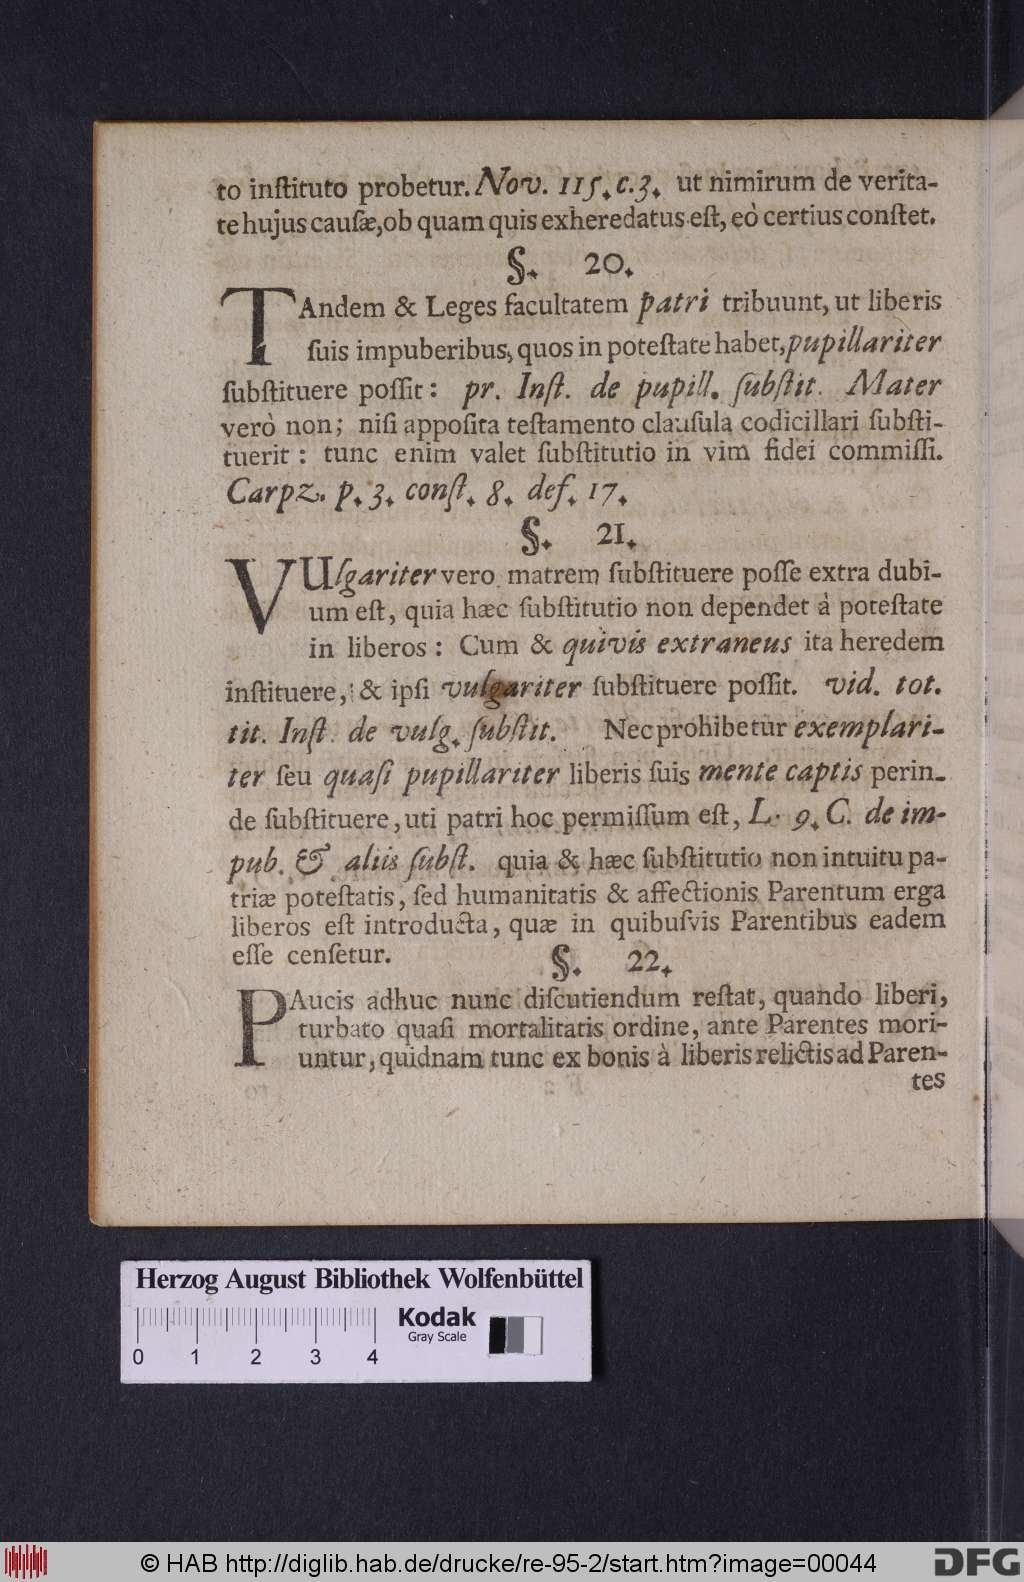 to inſtituto probetur. Nov. 115. c. 3. ut nimirum de verita-
te hujus cauſæ, ob quam quis exheredatus eſt, eò certius conſtet.
§. 20.
TAndem & Leges facultatem patri tribuunt, ut liberis
ſuis impuberibus, quos in poteſtate habet, pupillariter
ſubſtituere poſſit: pr. Inſt. de pupill. ſubſtit. Mater
verò non; niſi appoſita teſtamento clauſula codicillari ſubſti-
tuerit: tunc enim valet ſubſtitutio in vim fidei commiſſi.
Carpz. p. 3. conſt. 8. def. 17.
§. 21.
VUlgariter vero matrem ſubſtituere poſſe extra dubi-
um eſt, quia hæc ſubſtitutio non dependet à poteſtate
in liberos: Cum & quivis extraneus ita heredem
inſtituere, & ipſi vulgariter ſubſtituere poſſit. vid. tot.
tit. Inſt. de vulg. ſubſtit. Nec prohibetur exemplari-
ter ſeu quaſi pupillariter liberis ſuis mente captis perin-
de ſubſtituere, uti patri hoc permiſſum eſt, L. 9. C. de im-
pub. & aliis ſubſt. quia & hæc ſubſtitutio non intuitu pa-
triæ poteſtatis, ſed humanitatis & affectionis Parentum erga
liberos eſt introducta, quæ in quibuſvis Parentibus eadem
eſſe cenſetur.
§. 22.
PAucis adhuc nunc diſcutiendum reſtat, quando liberi,
turbato quaſi mortalitatis ordine, ante Parentes mori-
untur, quidnam tunc ex bonis à liberis relictis ad Paren-
tes
Herzog August Bibliothek Wolfenbüttel
Kodak
Gray Scale
0 1 2 3 4
© HAB http://diglib.hab.de/drucke/re-95-2/start.htm?image=00044
DFG